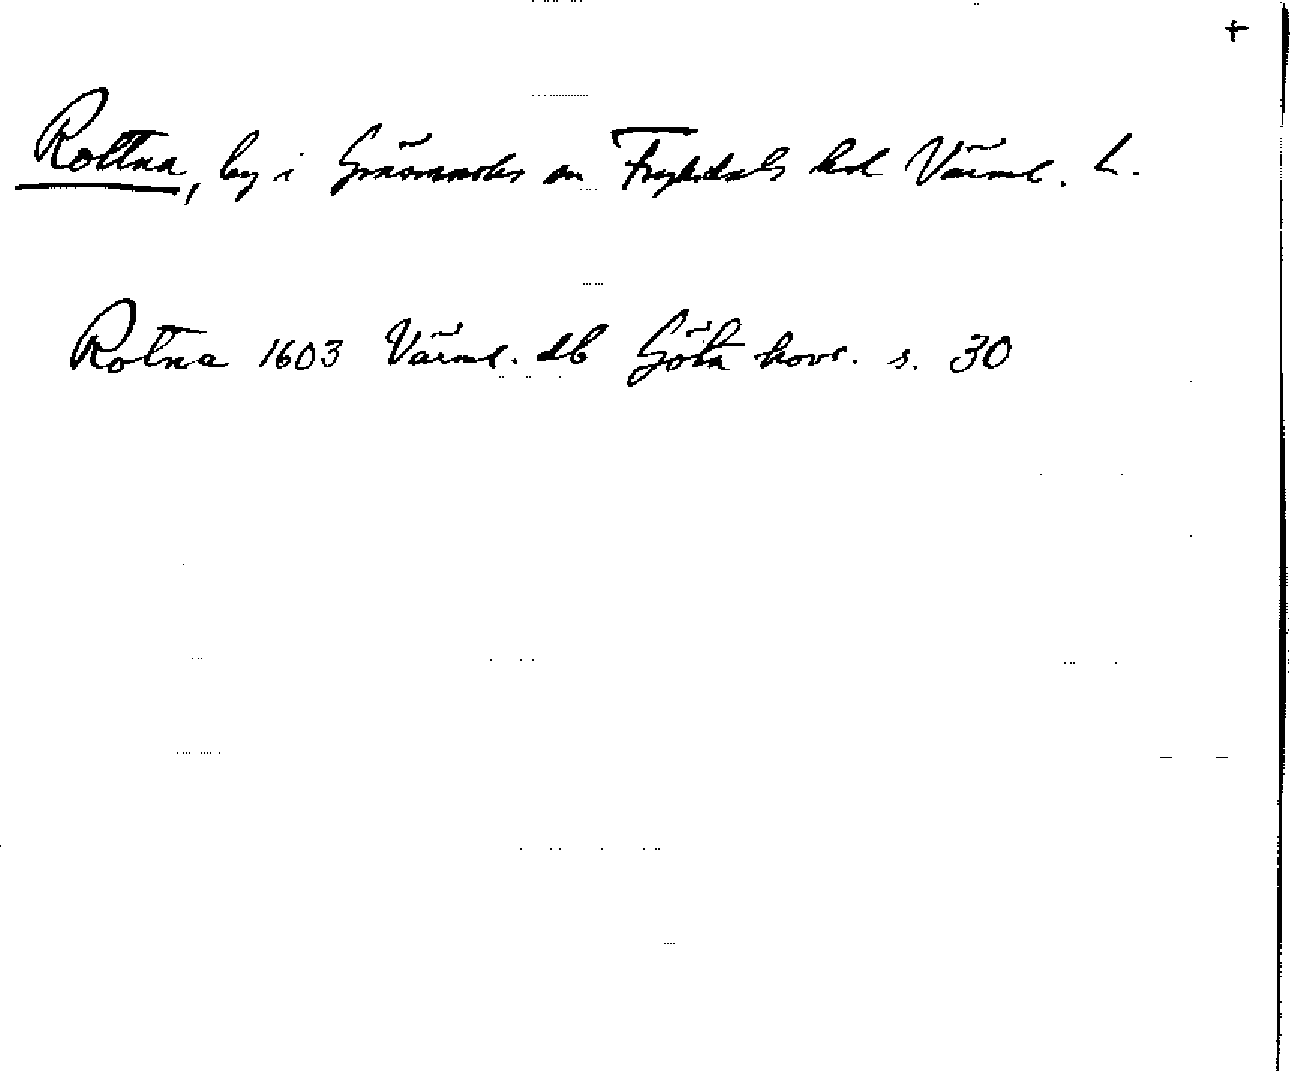 +
Rottna, by i Gräsmarks sn Fryksdals hd Värml. L.
Rotna 1603 Värml. db Göta hovr. s. 30